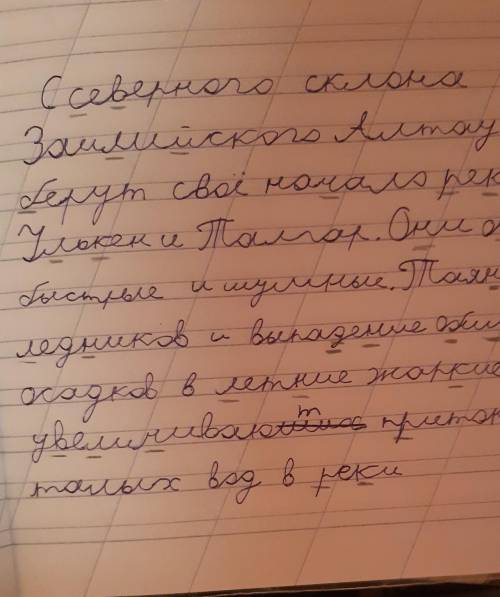 С северного склона
Заилийского Алатау
берут своё начало рек
Улькен и Талгар. Они
быстрые и шумные. Таян
ледников и выпадение оби
осадков в летние жаркие
увеличивают приток
талых вод в реки